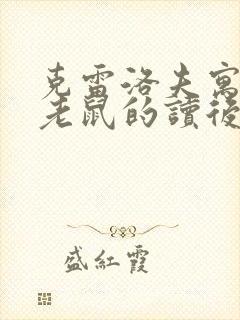 克雷洛夫寓
老鼠的讀後
盛紅霞